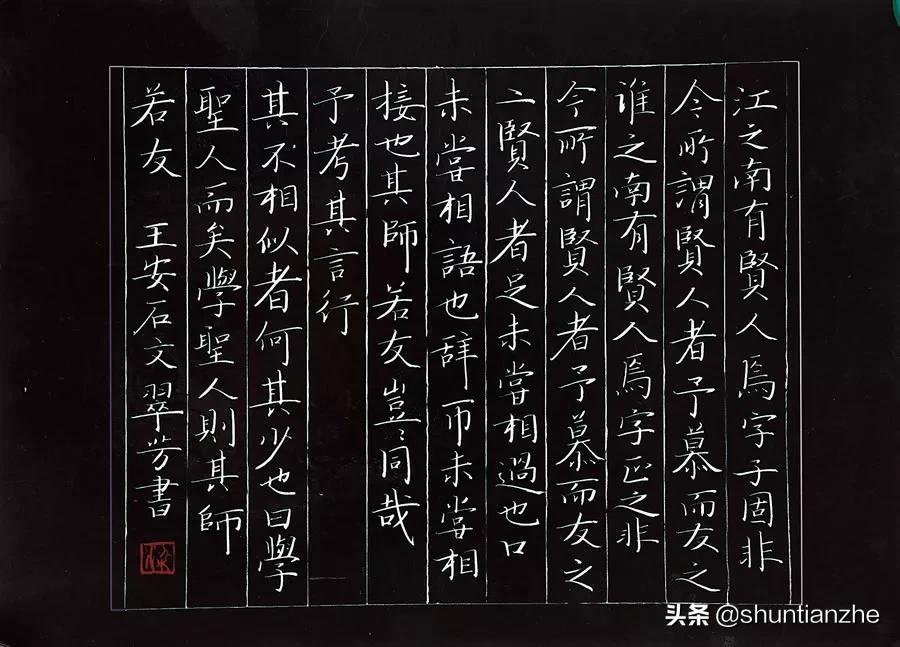 江之南有賢人焉字子固非
今所謂賢人者予慕而友之
淮之南有賢人焉字正之非
今所謂賢人者予慕而友之
二賢人者足未嘗相過也口
未嘗相語也辞币未嘗相
接也其師若友豈同哉
予考其言行
其不相似者何其少也曰學
聖人而矣學聖人則其師
若友 王安石文翠芳書
头条 @shuntianzhe